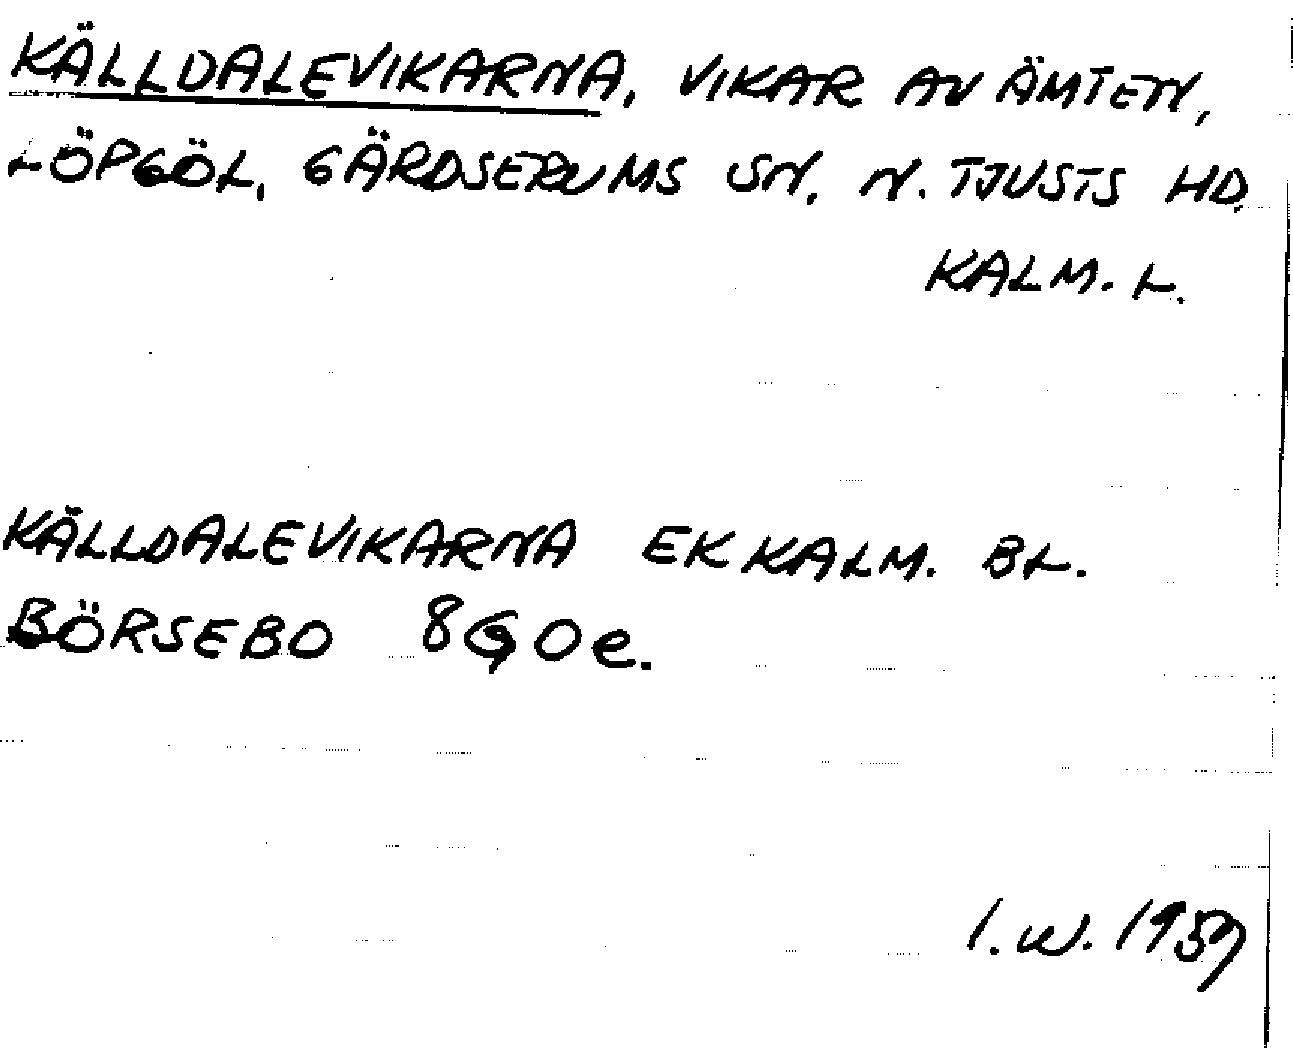 KÄLLDALEVIKARNA, VIKAR AV ÄMTEN,
LÖPGÖL, GÄRDSERUMS SN, N. TJUSTS HD,
KALM. L.
KÄLLDALEVIKARNA EK KALM. BL.
BÖRSEBO 8G0e.
I.W. 1959